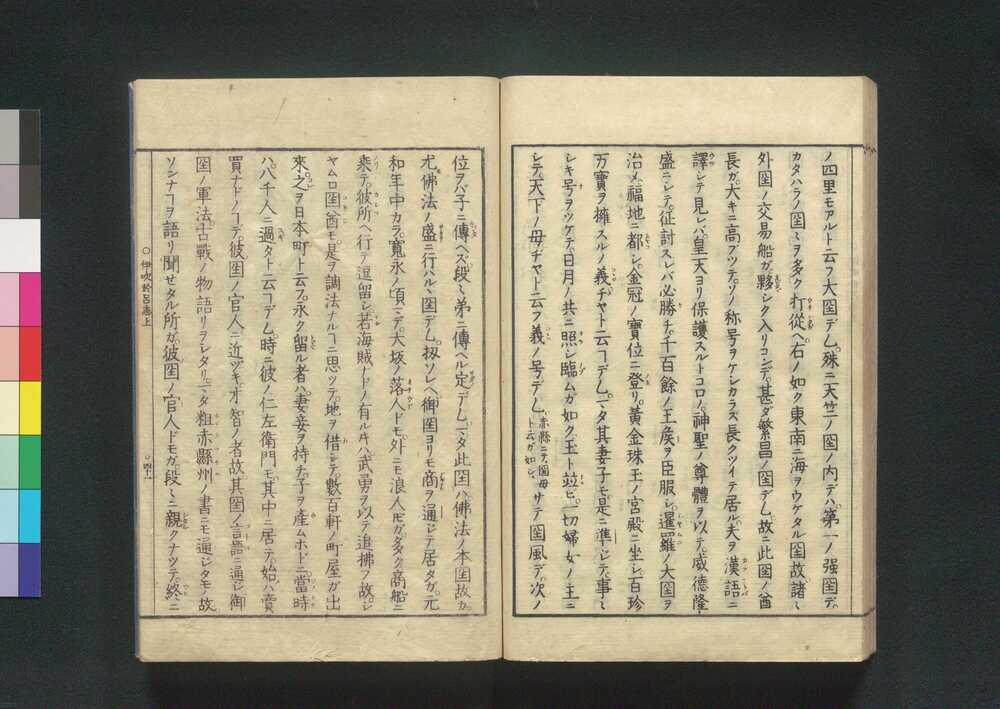 ノ四里モアルト云フ大囯デム。殊ニ天竺ノ囯ノ内デハ第一ノ强囯デ
カタハラノ囯〻ヲ多ク打從ヘ右ノ如ク東南ニ海ヲウケタル囯故諸〻
外囯ノ交易船ガ夥シク入リコンデ甚ダ繁昌ノ囯デム故ニ此囯ノ酋
長ガ大キニ高ブツテソノ称号ヲケシカラズ長クツイテ居ル夫ヲ漢語ニ
譯シテ見レバ皇天ヨリ保護スルトコロノ神聖ノ尊體ヲ以テ威德隆
盛ニシテ征討スレバ必勝チ千百餘ノ王矦ヲ臣服シ暹羅ノ大囯ヲ
治メ福地ニ都シ金冠ノ寶位ニ登リ黄金珠玉ノ宮殿ニ坐シ百珍
万寶ヲ擁スルノ義ヂヤト云コデムマタ其妻子モ是ニ準シテ事〻
シキ号ヲツケテ日月ノ共ニ照シ臨ムガ如ク玉ト竝ビ一切婦女ノ王ニ
シテ天下ノ母ヂヤト云フ義ノ号デム 赤縣ニテ囯母ト云ガ如シ サテ囯風デ次ノ
位ヲバ子ニ傳ヘズ段〻弟ニ傳ヘル定デムマタ此囯ハ佛法ノ本囯故カ
尤佛法ノ盛ニ行ハルヽ囯デム。扨ソレヘ御囯ヨリモ商ヲ通シテ居タガ元
和年中カラ寬永ノ頃マデ大坂ノ落人ドモ外ニモ浪人𪜈ガ多ク商船ニ
乘テ彼所ヘ行テ逗留シ若海賊ナドノ有ル𪜈ハ武勇ヲ以テ追拂フ故シ
ヤムロ囯酋モ是ヲ調法ナルコニ思ツテ地ヲ借シテ數百軒ノ町屋ガ出
來之ヲ日本町ト云フ永ク留ル者ハ妻妾ヲ持チ子ヲ產ムホドニ當時
ハ八千人ニ過タト云コデム時ニ彼ノ仁左衛門モ其中ニ居テ始ハ賣
買ナドノコデ彼囯ノ官人ニ近ヅキ才智ノ者故其囯ノ言語ニ通シ御
囯ノ軍法古戰ノ物語リヲシタリマタ粗赤縣州ノ書ニモ通シタモノ故
ソンナコヲ語リ聞セタル所ガ彼囯ノ官人ドモガ段〻ニ親クナツテ終ニ
○伊吹於呂志上
○四十一